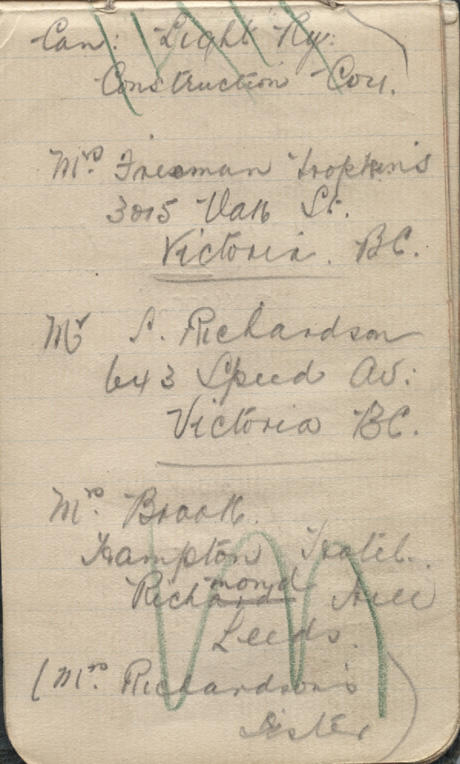 Can: Light Ry:
Construction Cou.
Mrs Freeman Hopkins
3015 Oak St.
Victoria. BC.
Mr S. Richardson
643 Speed Av:
Victoria BC.
Mrs. Brook.
Hampton Hotel.
Richard mond Hill
Leeds.
(Mrs. Richardson's
Sister)